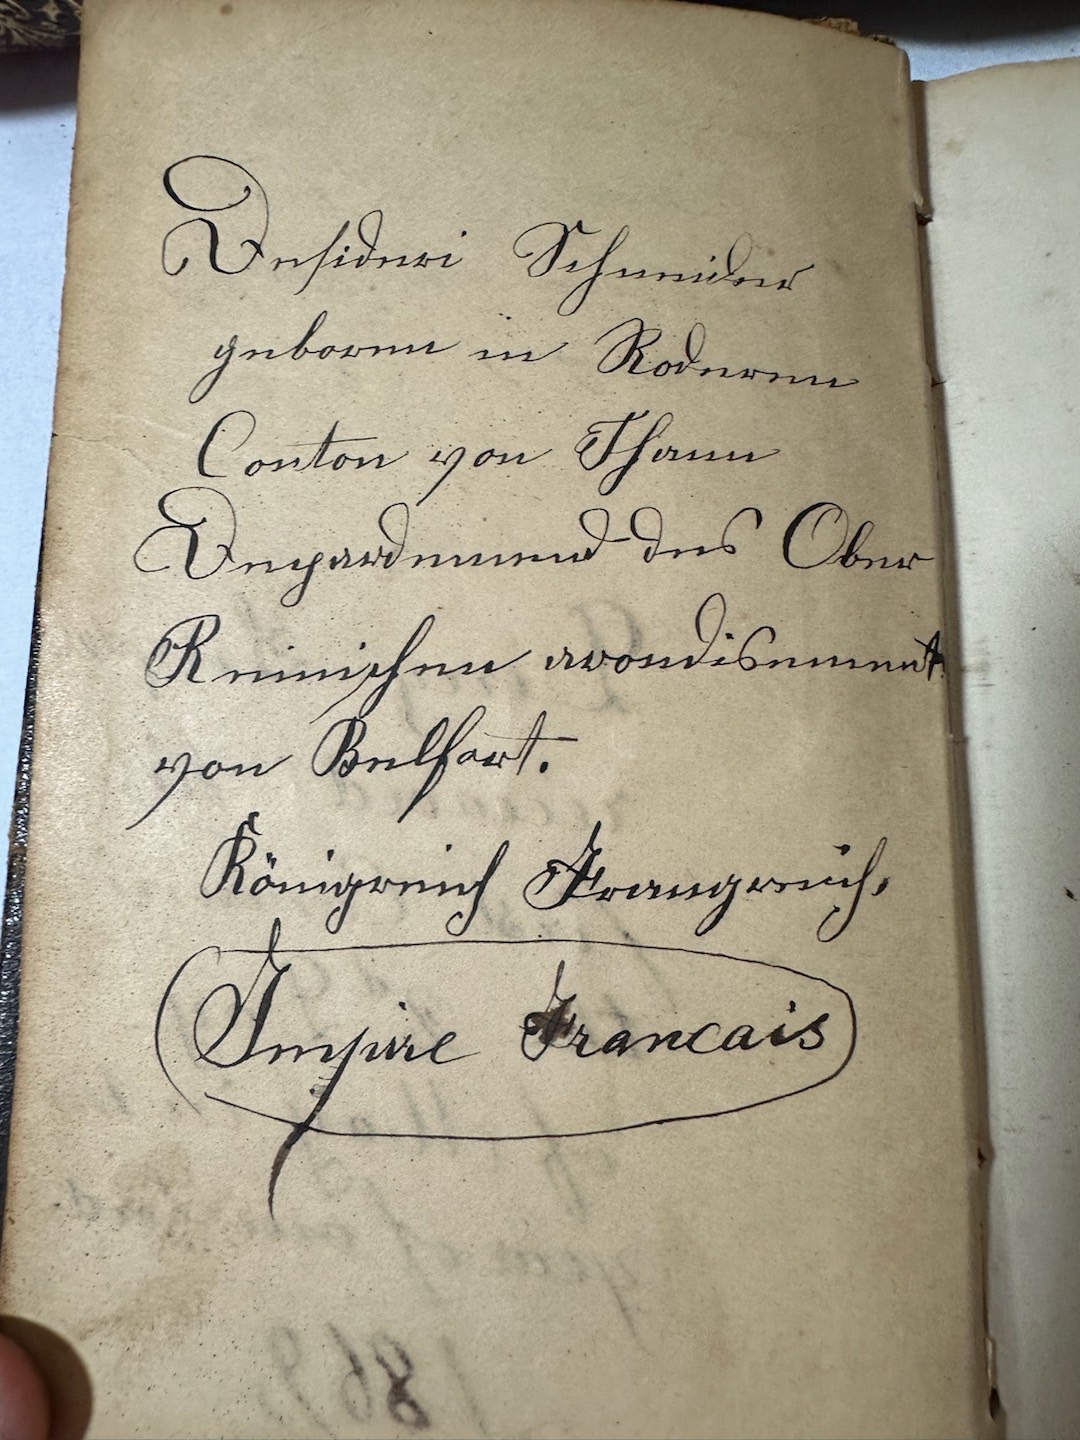 Desideri Schneider
geboren in Roderen
Conton von Thann
Depardemend des Ober
Reinischen arondisement
von Belfort.
Königreich Frangreich.
Impire Francais
1869